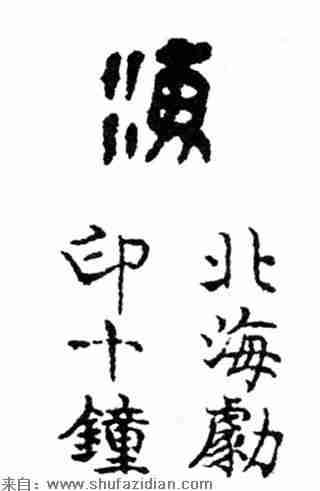 北海勮
印十鐘
来自：www.shufazidian.com